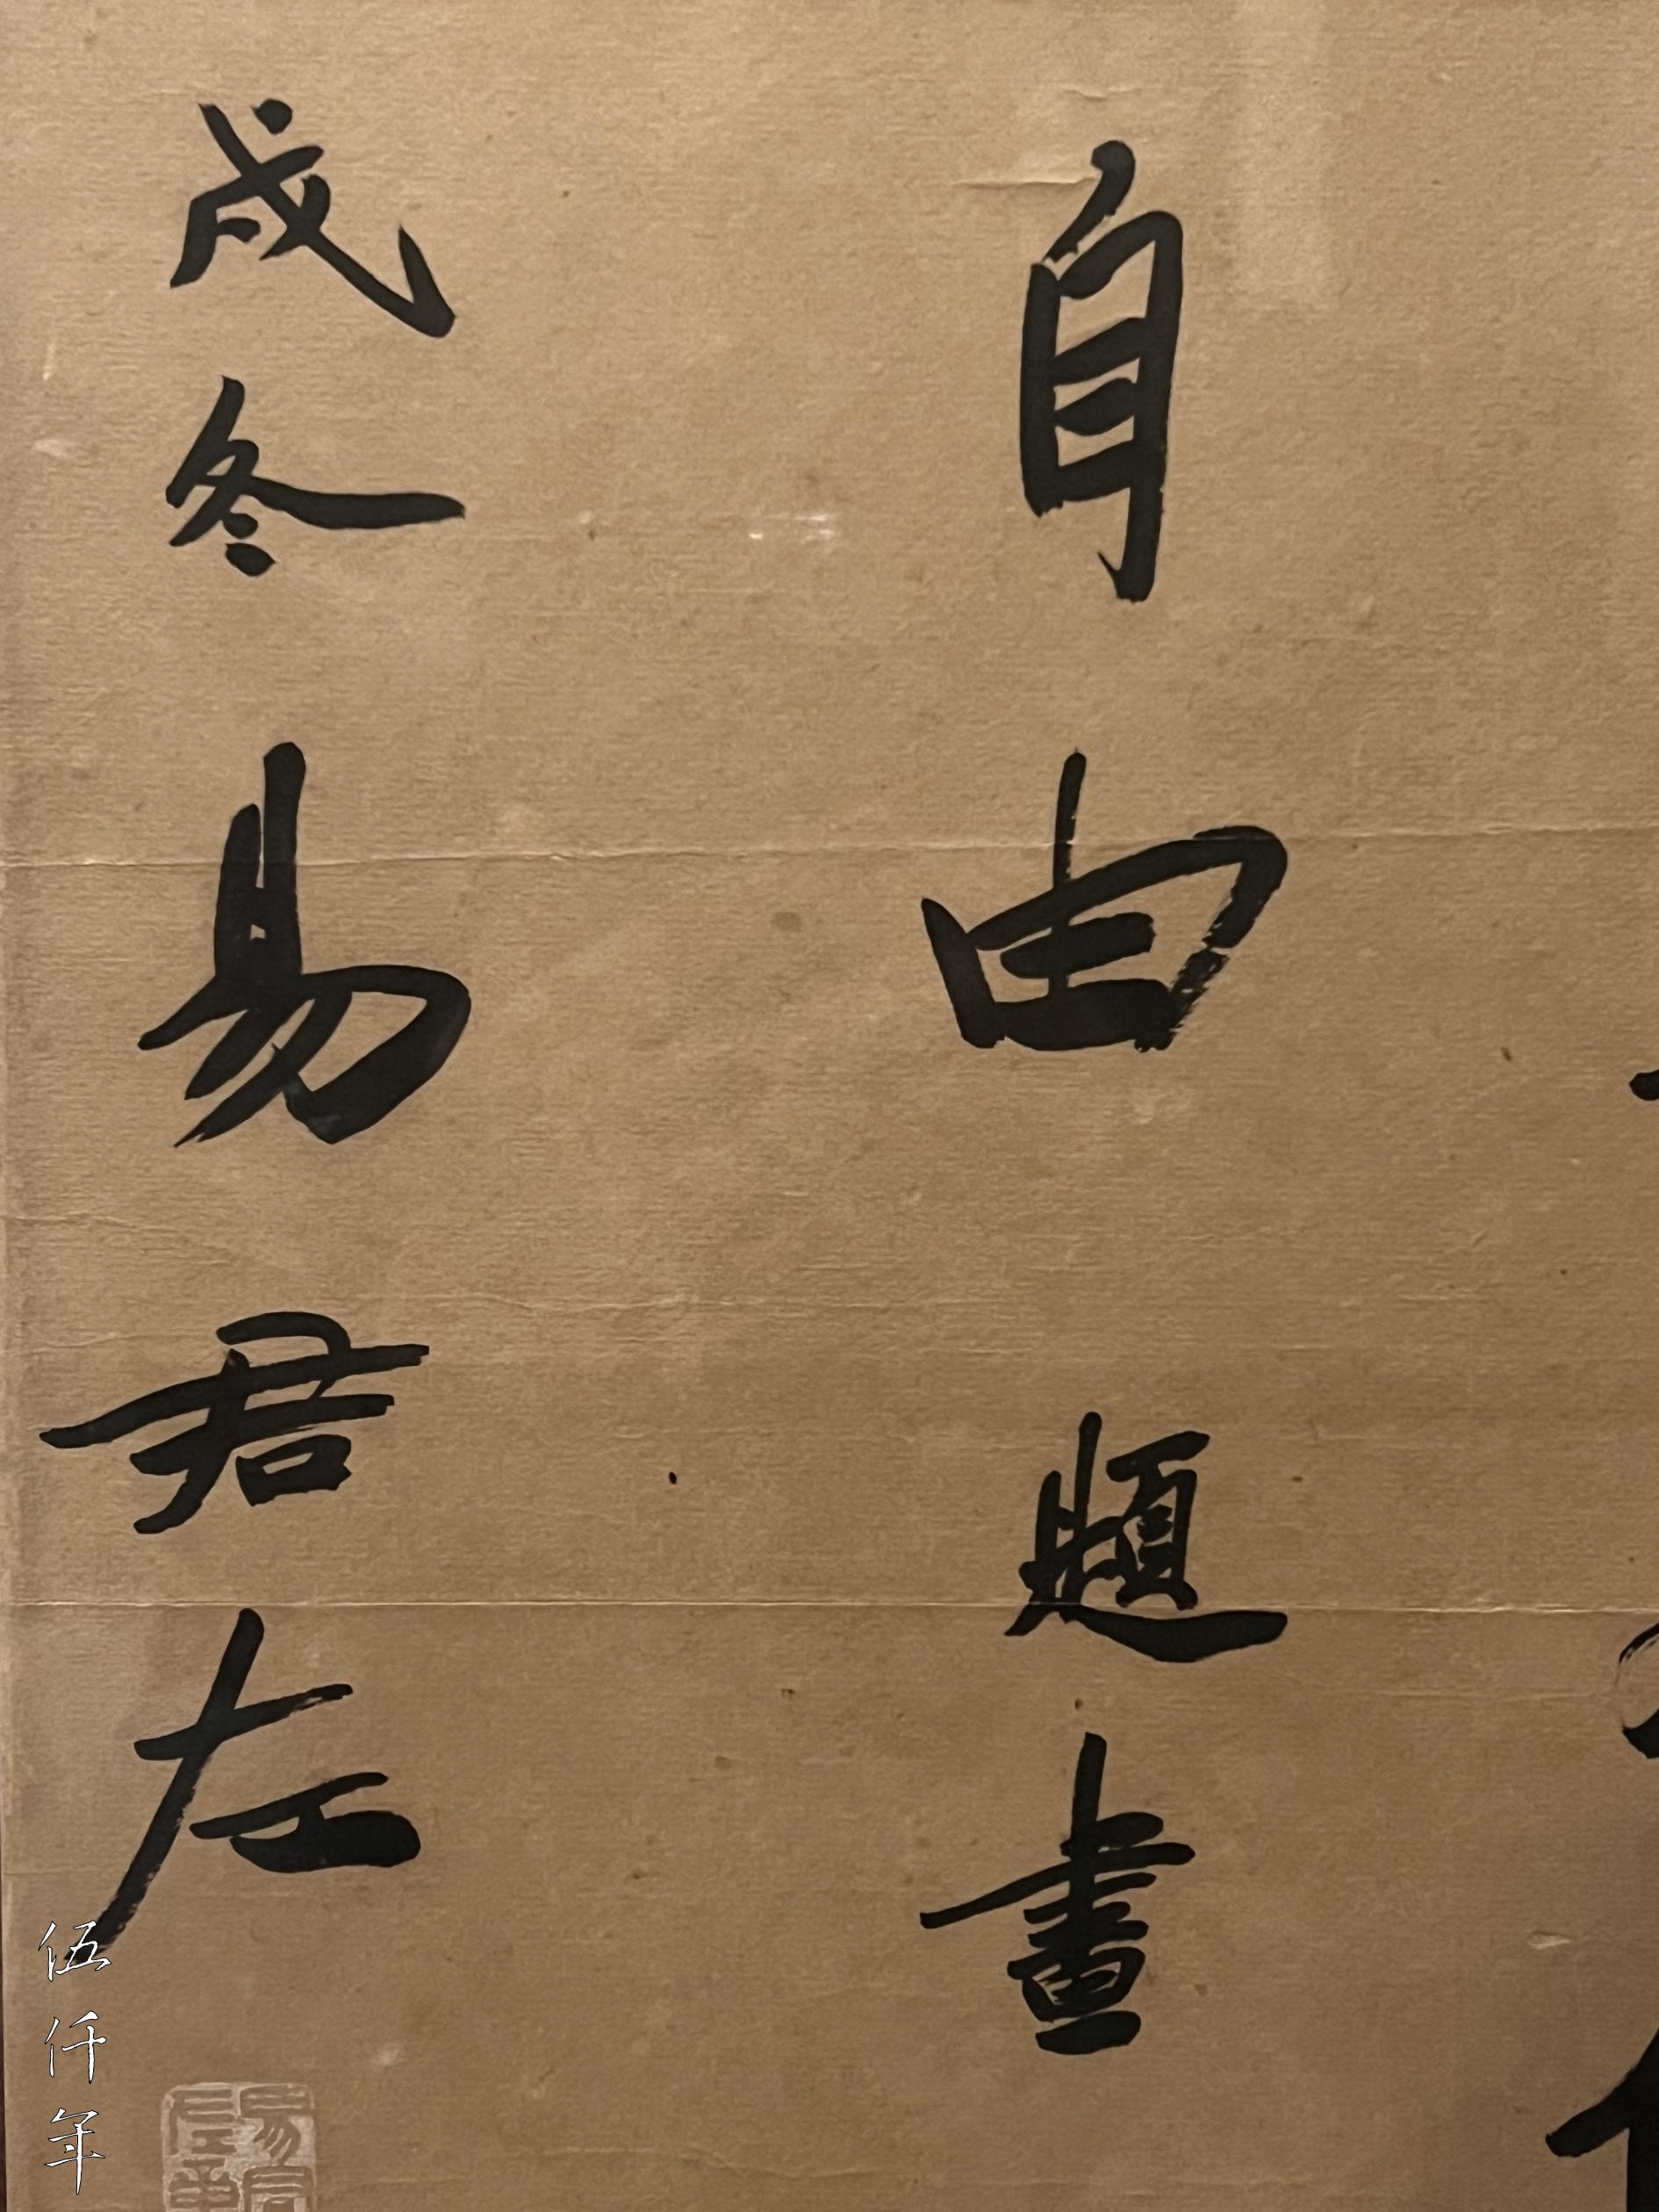 自由題畫
戍冬易君左
伍仟年